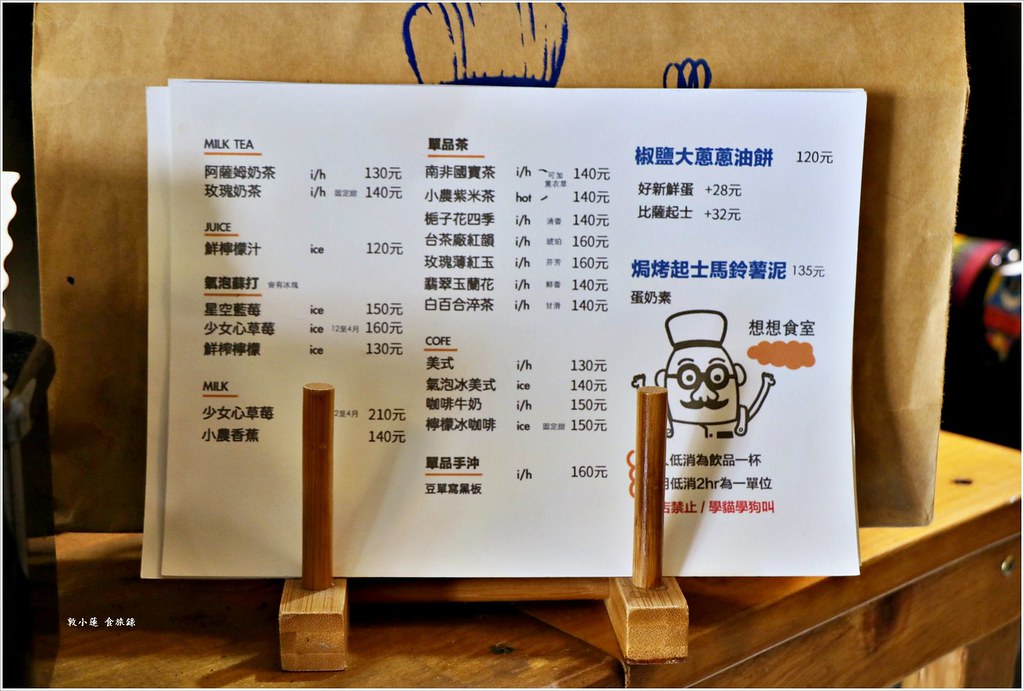 MILK TEA
阿薩姆奶茶 i/h 130元
玫瑰奶茶 i/h 固定甜 140元
JUICE
鮮檸檬汁 ice 120元
氣泡蘇打 會有冰塊
星空藍莓 ice 150元
少女心草莓 ice 12至4月 160元
鮮榨檸檬 ice 130元
MILK
少女心草莓 2至4月 210元
小農香蕉 140元
單品茶
南非國寶茶 i/h 可加薰衣草 140元
小農紫米茶 hot 140元
梔子花四季 i/h 清香 140元
台茶廠紅韻 i/h 琥珀 160元
玫瑰薄紅玉 i/h 芬芳 160元
翡翠玉蘭花 i/h 鮮香 140元
白百合淬茶 i/h 甘滑 140元
COFE
美式 i/h 130元
氣泡冰美式 ice 140元
咖啡牛奶 i/h 150元
檸檬冰咖啡 ice 固定甜 150元
單品手沖 i/h 160元
豆單寫黑板
椒鹽大蔥蔥油餅 120元
好新鮮蛋 +28元
比薩起士 +32元
焗烤起士馬鈴薯泥 135元
蛋奶素
想想食室
低消為飲品一杯
低消2hr為一單位
店禁止 / 學貓學狗叫
敦小蓮 食旅錄